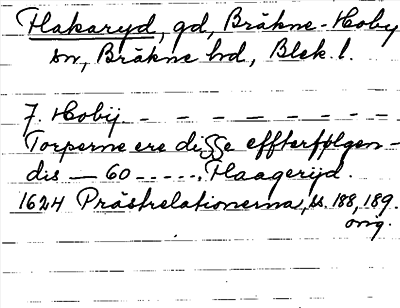 Hakaryd, gd, Bräkne-Hoby
sn, Bräkne hd, Blek. l.
J. Hobij - - - - - - - -
Torperne ere disse effterfølgen-
dis — 60 - - - - . Haagerijd.
1624 Prästrelationerna, ss. 188, 189.
orig.